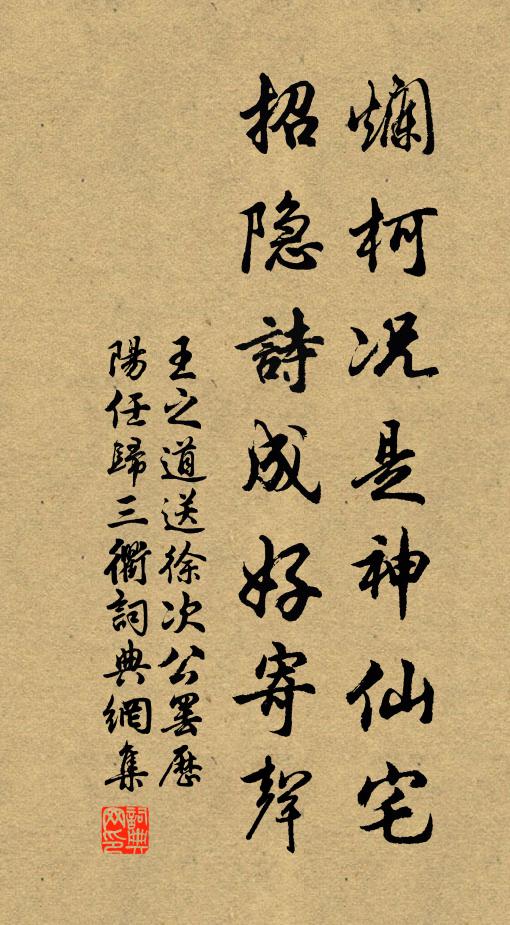 爛柯况是神仙宅
招隐詩成好寄聲
王之道送徐次公罢歷
陽任歸三衢詞典網集
詞典
网印